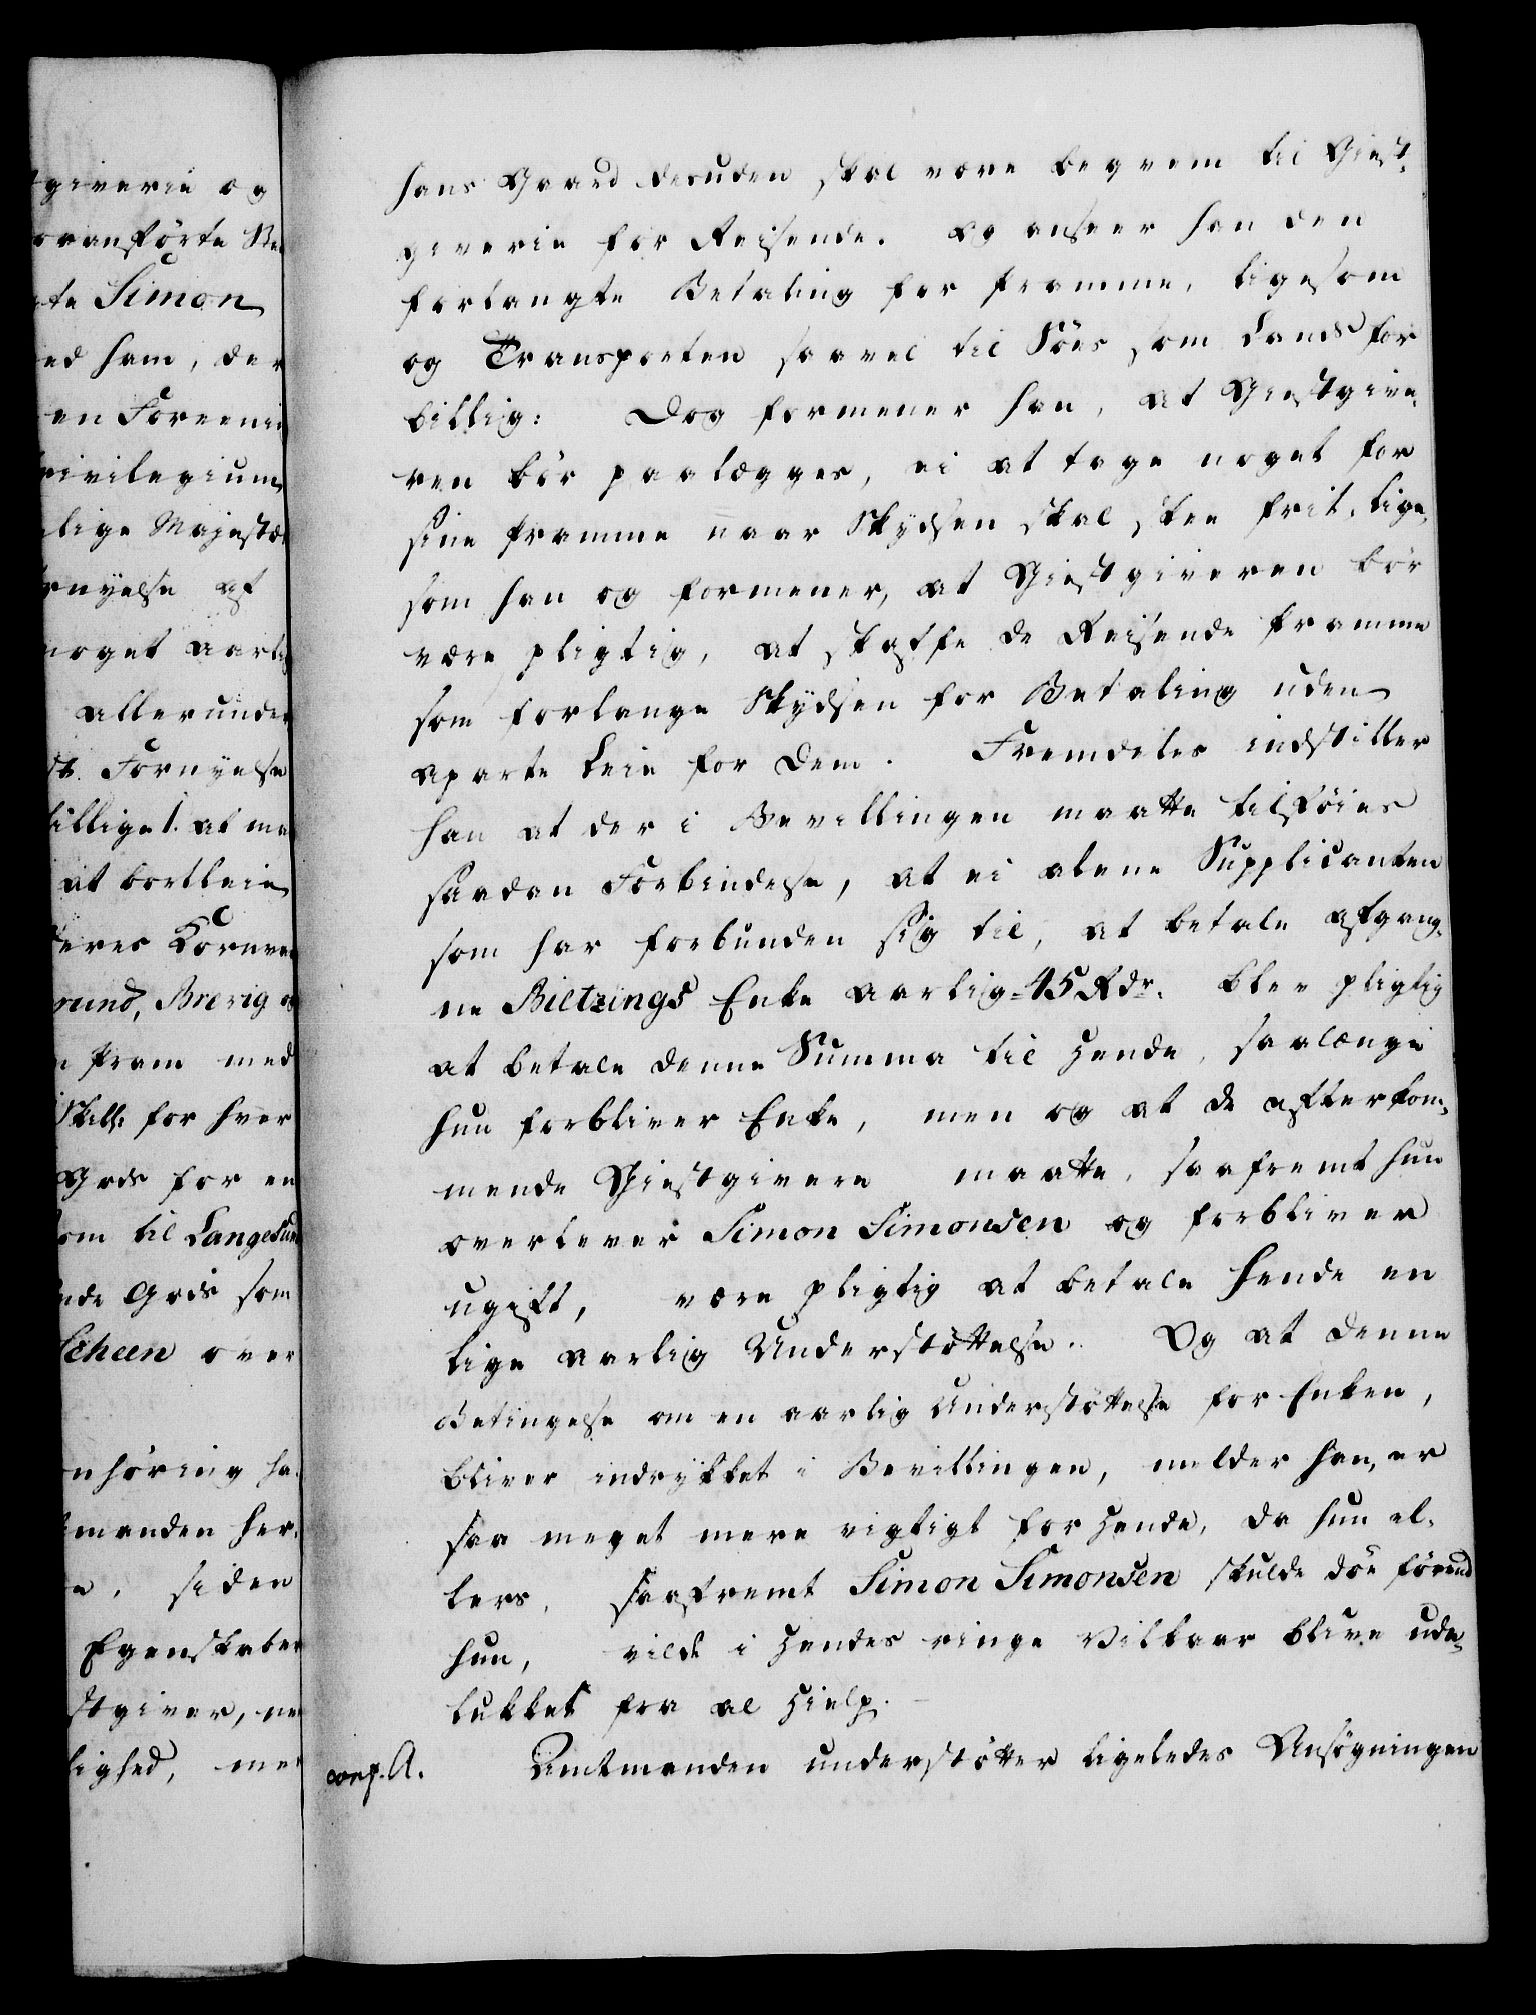 giverie og
oranførte Be
te Simon
ed ham, der
en Foreenin
rivilegium
lige Majestæ
rnyelse af
noget aarli
allerunder
st. Fornyelse
tillige 1. at ma
at bortleie
deres Kornva
rund, Brevig o
n Pram med
Skill: for hver
Gods for en
om til Langesun
nde Gods som
Scheen over
nhøring ha
manden her,
e, siden
Egenskaber
stgiver, ne
lighed, men
hans Gaard desuden skal være beqvem til Giest-
giverie for Reisende. Og anseer han den
forlangte Betaling for Pramme, ligesom
og Transporten saavel til Søes som Lands for
billig: Dog formener han, at Giestgive-
ren bør paalægges, ei at tage noget for
sine Pramme naar Skydsen skal skee frit, lige-
som han og formener, at Giestgiveren bør
være pligtig, at skaffe de Reisende Pramme
som forlange Skydsen for Betaling uden
aparte Leie for dem. Fremdeles indstiller
han at der i Bevillingen maatte tilføies
saadan Forbindelse, at ei alene Supplicanten
som har forbunden sig til, at betale afgang-
ne Bieltzings Enke aarlig 45 Rdr. blev pligtig
at betale denne Summa til hende, saalænge
hun forbliver Enke, men og at de efterkom-
mende Giestgivere maatte, saafremt hun
overlever Simon Simonsen og forbliver
ugift, være pligtig at betale hende en
lige aarlig Understøttelse. Og at denne
Betingelse om en aarlig Understøttelse for Enken,
bliver indrykket i Bevillingen, melder han, er
saa meget mere vigtigt for hende, da hun el-
lers, saafremt Simon Simonsen skulde døe førend
hun, vilde i hendes ringe Vilkaar blive ude-
lukket fra al Hielp.
conf. A. Amtmanden understøtter ligeledes Ansøgningen